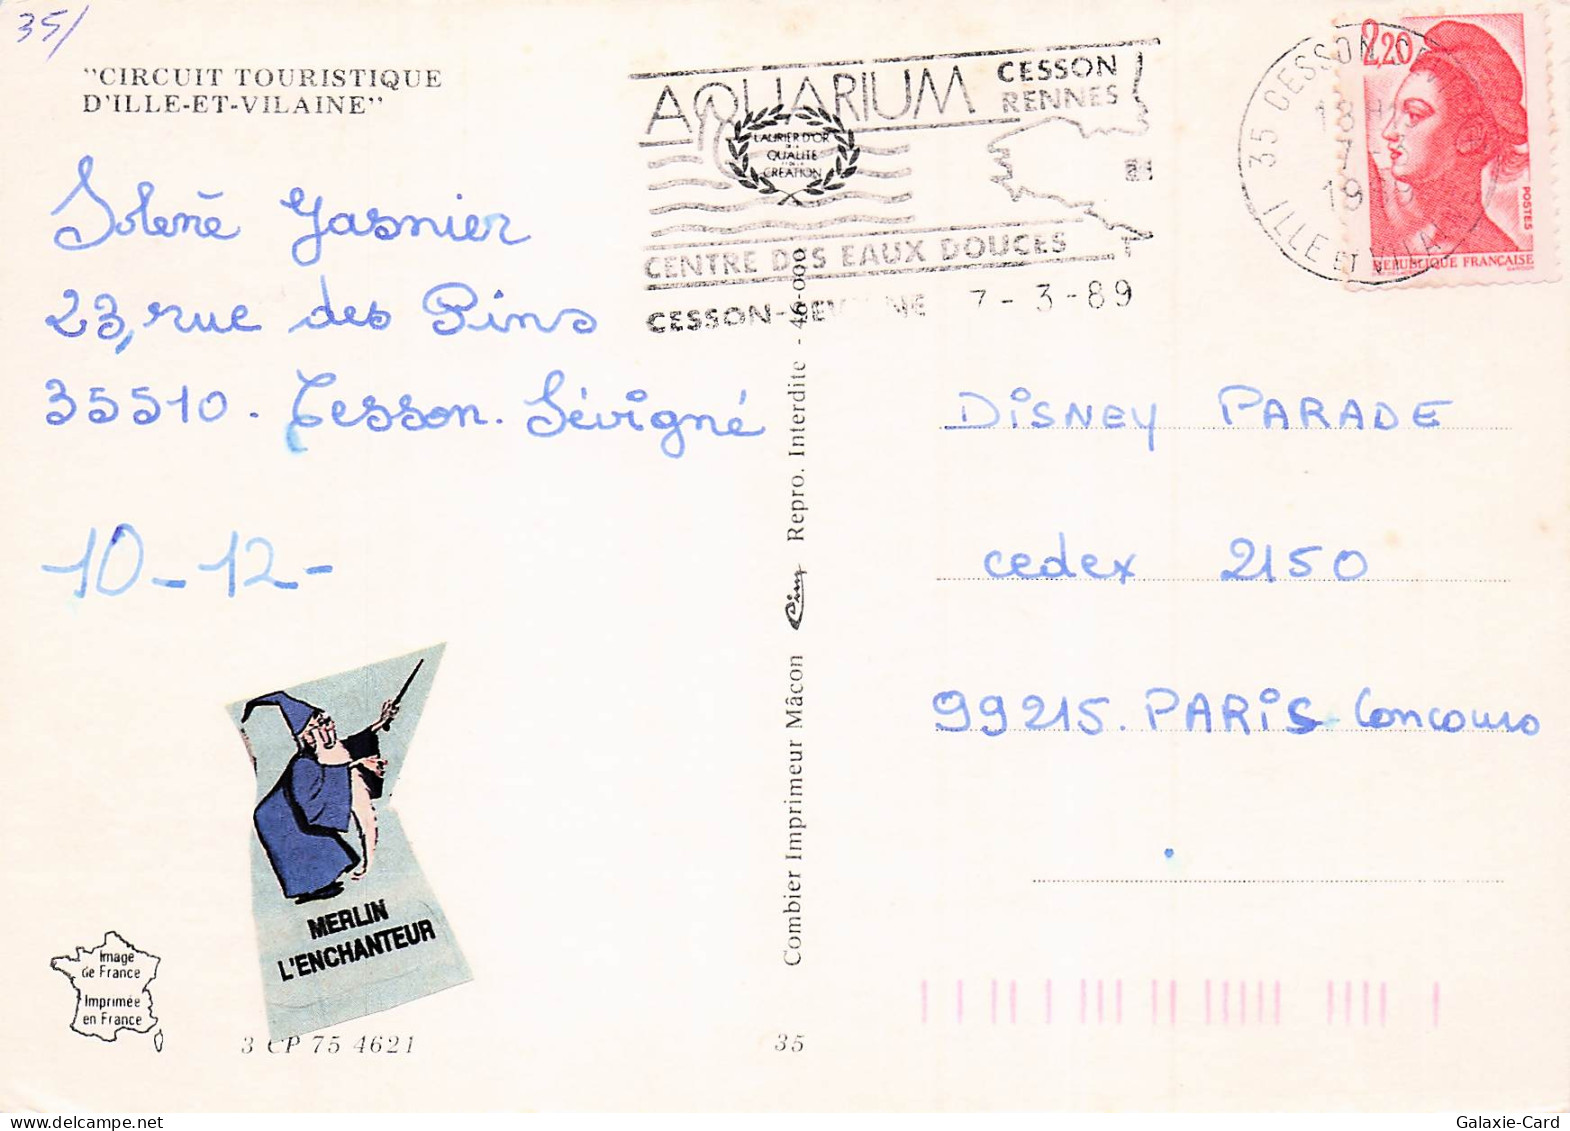 35/
"CIRCUIT TOURISTIQUE
D'ILLE-ET-VILAINE"
AQUARIUM CESSON
RENNES
LAURIER D'OR
DE LA
QUALITE
CREATION
CENTRE DES EAUX DOUCES
CESSON- 7-3-89
35 CESSON
18H
7-3
19
ILLE ET VILAINE
2,20
POSTES
REPUBLIQUE FRANÇAISE
Solène Gasnier
23, rue des Pins
35510. Cesson. Sévigné
10-12-
MERLIN
L'ENCHANTEUR
Image
de France
Imprimée
en France
3 CP 75 4621
Combier Imprimeur Mâcon Cim Repro. Interdite - 46-000
35
DiSNEY PARADE
cedex 2150
99215. PARiS Concours
Galaxie-Card